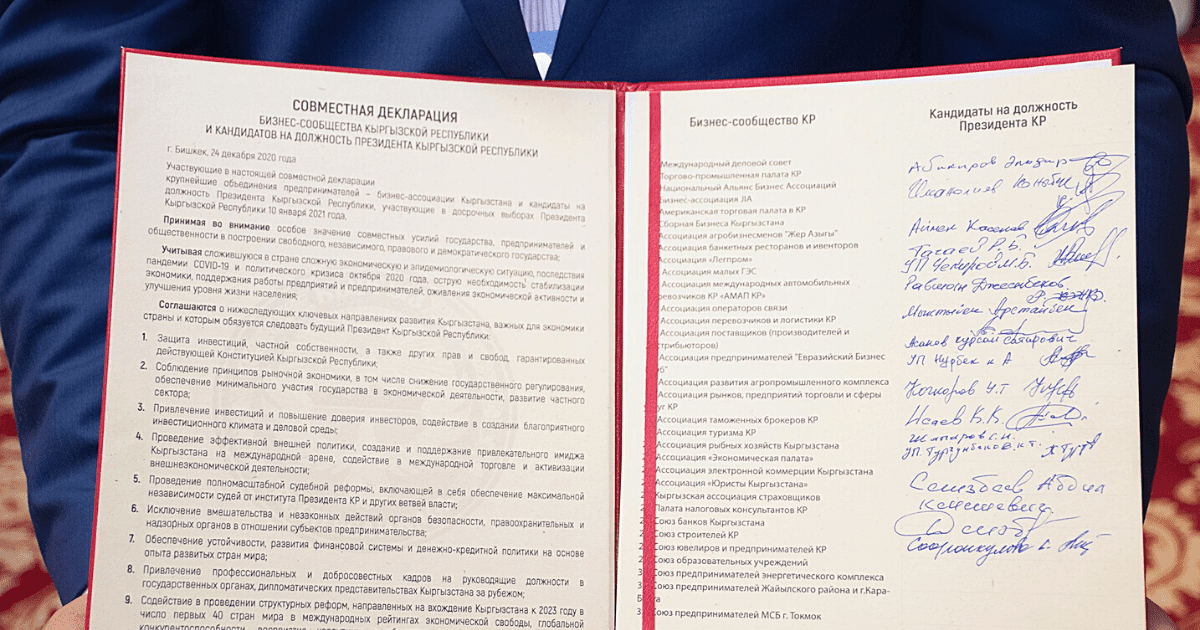 СОВМЕСТНАЯ ДЕКЛАРАЦИЯ
БИЗНЕС-СООБЩЕСТВА КЫРГЫЗСКОЙ РЕСПУБЛИКИ
И КАНДИДАТОВ НА ДОЛЖНОСТЬ ПРЕЗИДЕНТА КЫРГЫЗСКОЙ РЕСПУБЛИКИ
г. Бишкек, 24 декабря 2020 года
Участвующие в настоящей совместной декларации
крупнейшие объединения предпринимателей – бизнес-ассоциации Кыргызстана и кандидаты на
должность Президента Кыргызской Республики, участвующие в досрочных выборах Президента
Кыргызской Республики 10 января 2021 года,
Принимая во внимание особое значение совместных усилий государства, предпринимателей и
общественности в построении свободного, независимого, правового и демократического государства;
Учитывая сложившуюся в стране сложную экономическую и эпидемиологическую ситуацию, последствия
пандемии COVID-19 и политического кризиса октября 2020 года, острую необходимость стабилизации
экономики, поддержания работы предприятий и предпринимателей, оживления экономической активности и
улучшения уровня жизни населения;
Соглашаются о нижеследующих ключевых направлениях развития Кыргызстана, важных для экономики
страны и которым обязуется следовать будущий Президент Кыргызской Республики:
1. Защита инвестиций, частной собственности, а также других прав и свобод, гарантированных
действующей Конституцией Кыргызской Республики;
2. Соблюдение принципов рыночной экономики, в том числе снижение государственного регулирования,
обеспечение минимального участия государства в экономической деятельности, развитие частного
сектора;
3. Привлечение инвестиций и повышение доверия инвесторов, содействие в создании благоприятного
инвестиционного климата и деловой среды;
4. Проведение эффективной внешней политики, создание и поддержание привлекательного имиджа
Кыргызстана на международной арене, содействие в международной торговле и активизации
внешнеэкономической деятельности;
5. Проведение полномасштабной судебной реформы, включающей в себя обеспечение максимальной
независимости судей от института Президента КР и других ветвей власти;
6. Исключение вмешательства и незаконных действий органов безопасности, правоохранительных и
надзорных органов в отношении субъектов предпринимательства;
7. Обеспечение устойчивости, развития финансовой системы и денежно-кредитной политики на основе
опыта развитых стран мира;
8. Привлечение профессиональных и добросовестных кадров на руководящие должности в
государственных органах, дипломатических представительствах Кыргызстана за рубежом;
9. Содействие в проведении структурных реформ, направленных на вхождение Кыргызстана к 2023 году в
число первых 40 стран мира в международных рейтингах экономической свободы, глобальной
Бизнес-сообщество КР
Международный деловой совет
Торгово-промышленная палата КР
Национальный Альянс Бизнес Ассоциаций
Бизнес-ассоциация JIA
Американская торговая палата в КР
Сборная Бизнеса Кыргызстана
Ассоциация агробизнесменов "Жер Азыгы"
Ассоциация банкетных ресторанов и ивенторов
Ассоциация «Легпром»
Ассоциация малых ГЭС
Ассоциация международных автомобильных
ревозчиков КР «АМАП КР»
Ассоциация операторов связи
Ассоциация перевозчиков и логистики КР
Ассоциация поставщиков (производителей и
стрибьюторов)
Ассоциация предпринимателей "Евразийский Бизнес
б"
Ассоциация развития агропромышленного комплекса
Ассоциация рынков, предприятий торговли и сферы
уг КР
Ассоциация таможенных брокеров КР
Ассоциация туризма КР
Ассоциация рыбных хозяйств Кыргызстана
Ассоциация «Экономическая палата»
Ассоциация электронной коммерции Кыргызстана
Ассоциация «Юристы Кыргызстана»
Кыргызская ассоциация страховщиков
Палата налоговых консультантов КР
Союз банков Кыргызстана
Союз строителей КР
Союз ювелиров и предпринимателей КР
Союз образовательных учреждений
Союз предпринимателей энергетического комплекса
Союз предпринимателей Жайылского района и г.Кара-
Союз предпринимателей МСБ г. Токмок
Кандидаты на должность
Президента КР
Абакиров Эльдар
Иманалиев Канатбек
Аймен Касенов
Тагаев Р. Б.
УП Чекиров М.Б.
Равшан Джеенбеков
Мыктыбек Арстанбек
Кочкоров У.Т
Исаев К.К.